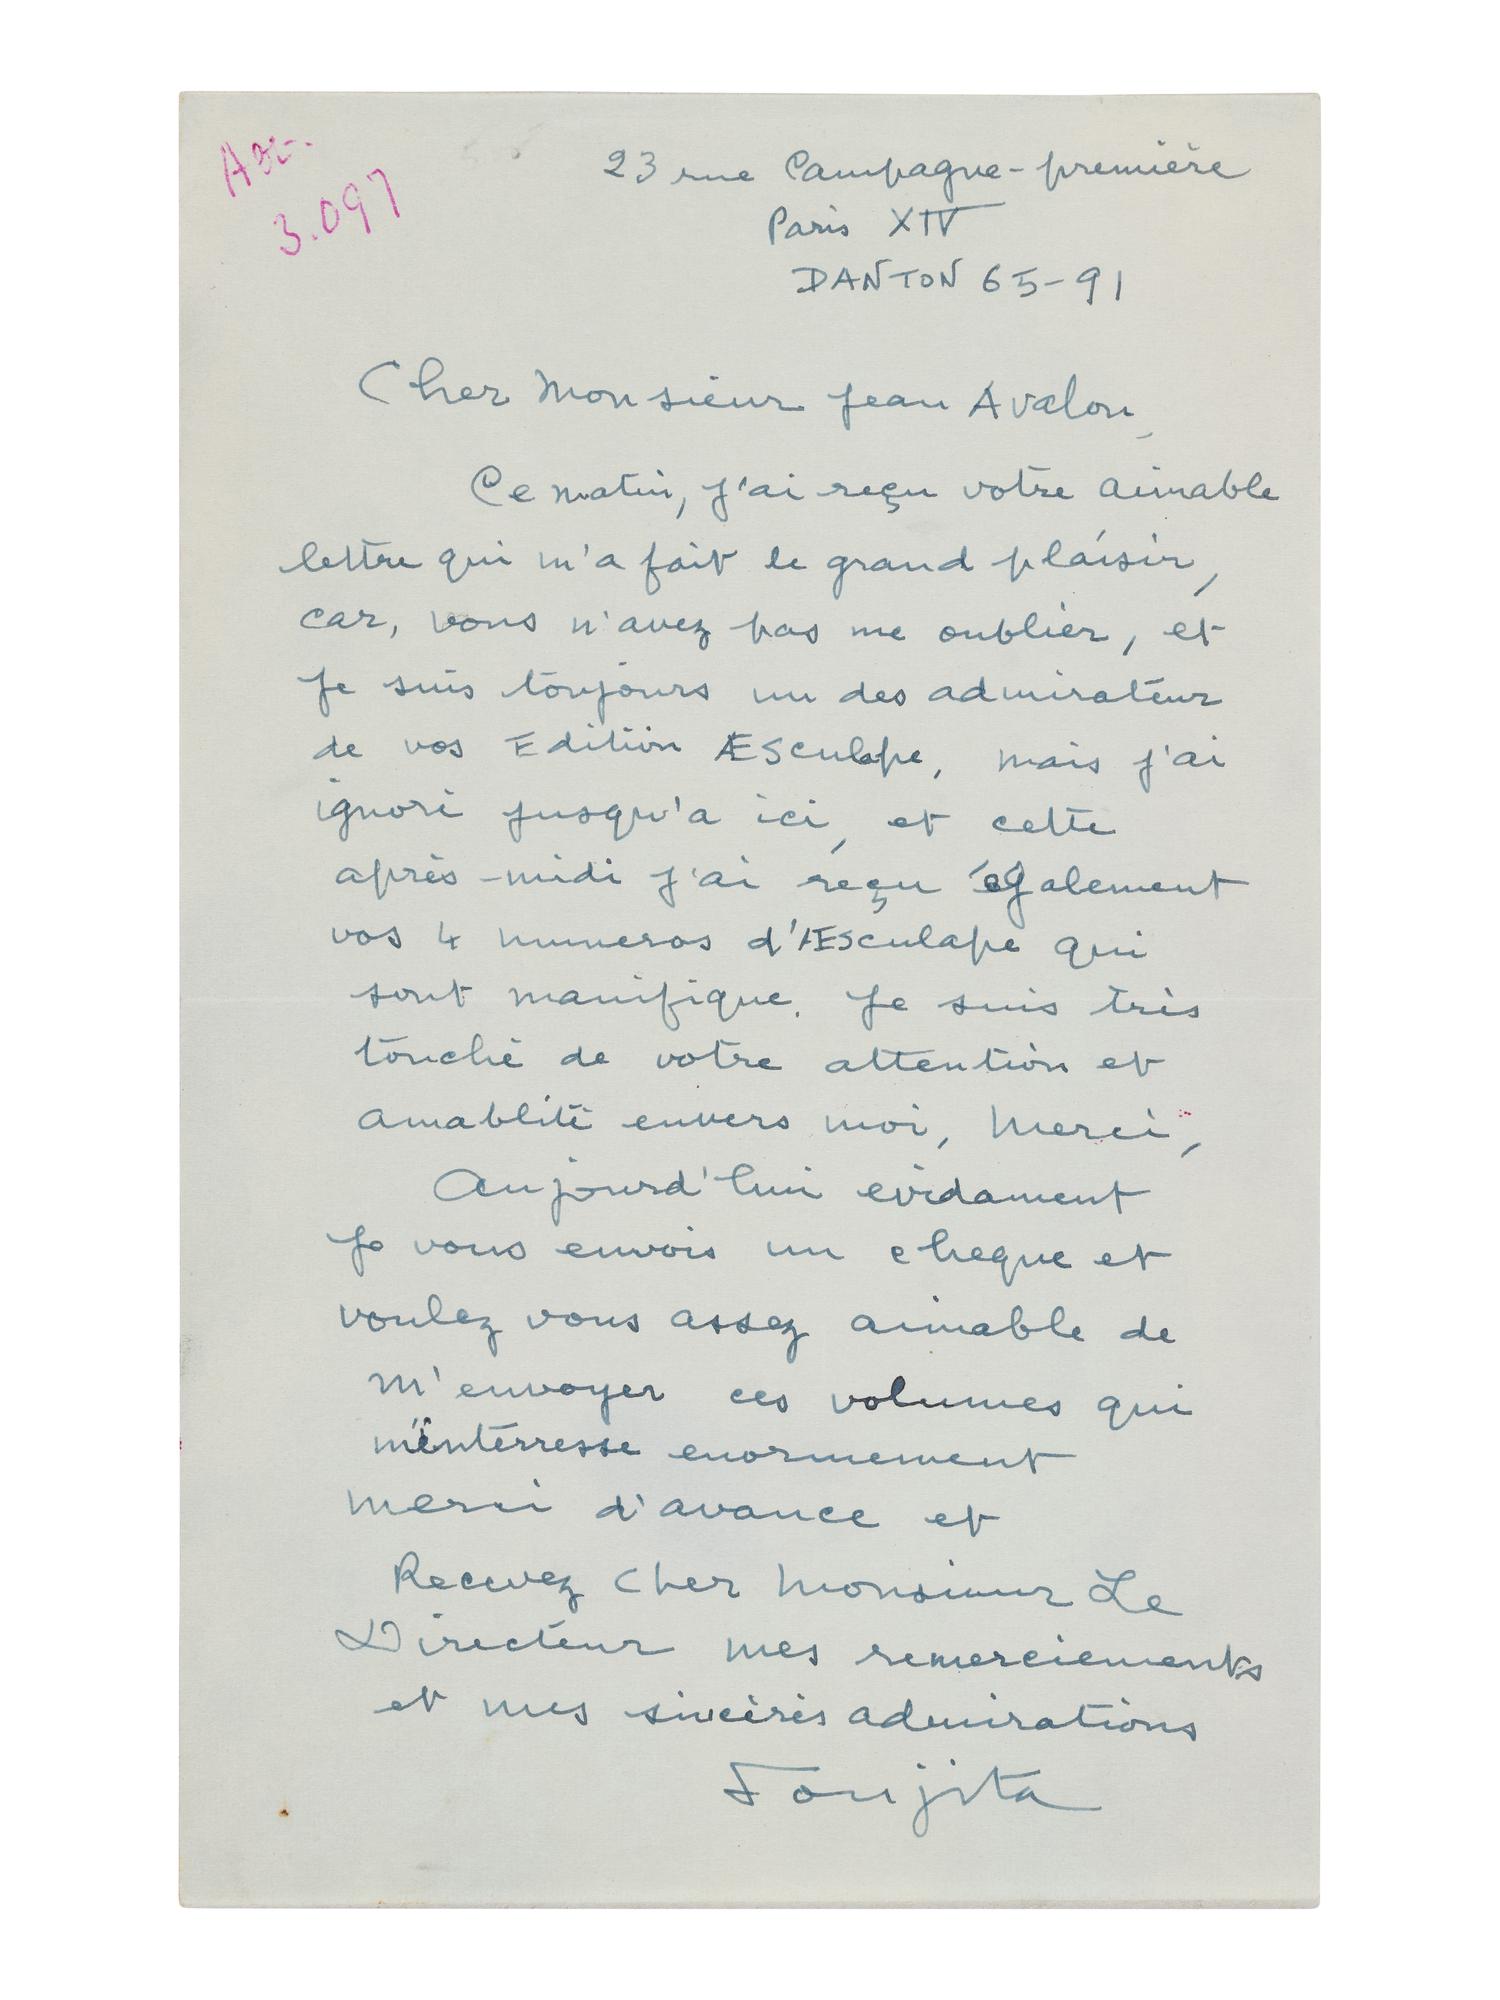 3.097
23 rue Campagne-première
Paris XIV
DANTON 65-91
Cher Monsieur Jean Avalon,
Ce matin, j'ai reçu votre aimable
lettre qui m'a fait le grand plaisir,
car, vous n'avez pas me oublier, et
Je suis toujours un des admirateur
de vos Edition ÆSculape, mais j'ai
ignoré jusqu'a ici, et cette
après-midi j'ai reçu égalament
vos 4 numeros d'ÆSculape qui
sont manifique. Je suis très
touché de votre attention et
amablité envers moi, Merci,
Aujourd'hui evidament
Je vous envois un cheque et
voulez vous assez aimable de
m'envoyer ces volumes qui
m'interresse enormement
merci d'avance et
Recevez Cher Monsieur Le
Directeur mes remerciements
et mes sincères admirations
Foujita